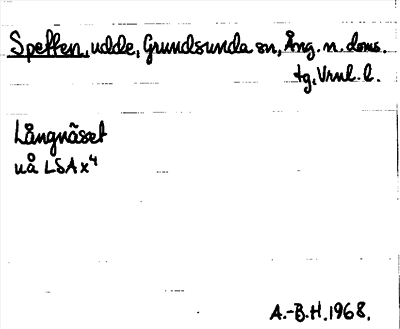 Speffen, udde, Grundsunda sn, Ång. n. doms.
tg, Vrnl. l.
Långnäset
uå LSA x⁴
A.-B.H. 1968.